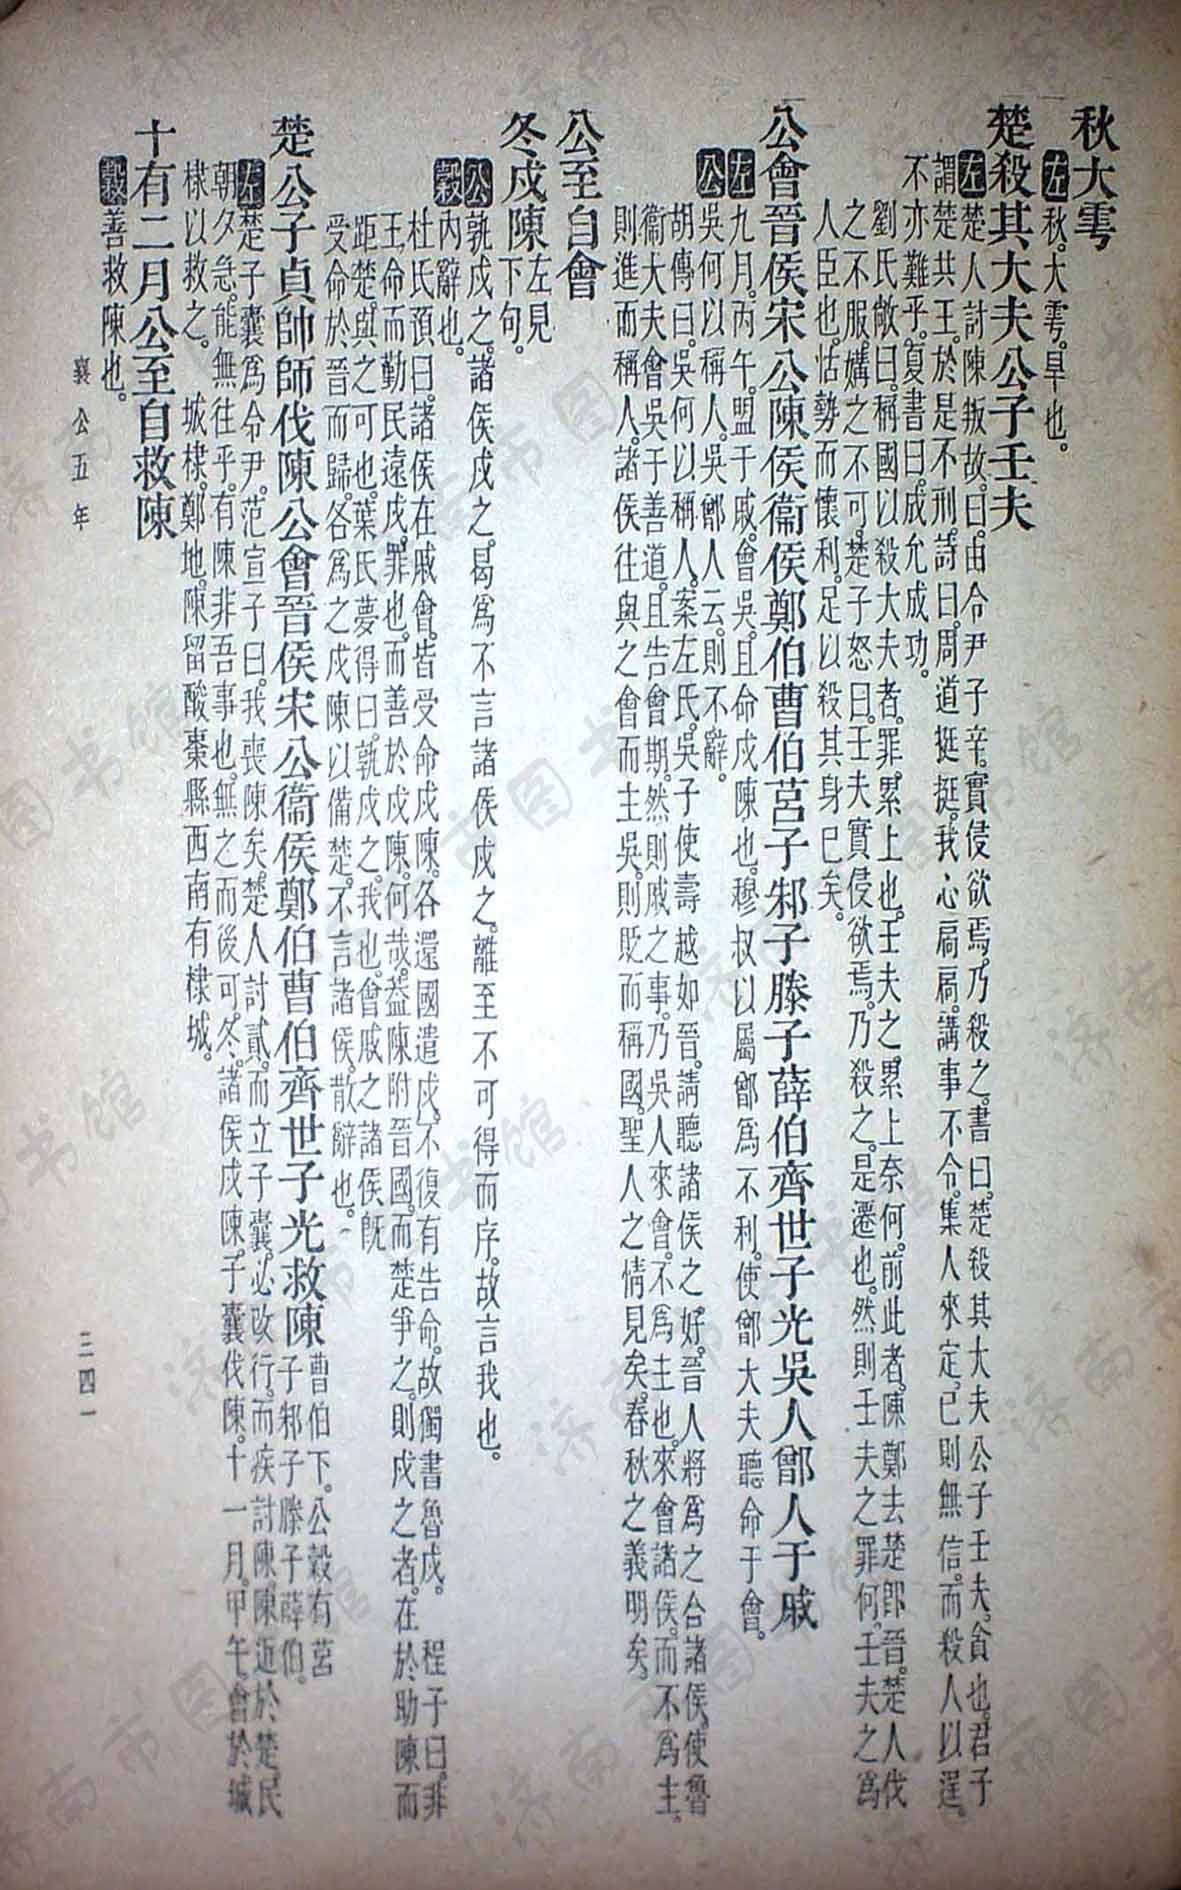 秋大雩
左秋。大雩。旱也。
楚殺其大夫公子壬夫
左楚人討陳叛故。曰。由令尹子辛。實侵欲焉。乃殺之。書曰。楚殺其大夫公子壬夫。貪也。君子
謂楚共王。於是不刑。詩曰。周道挺挺。我心扃扃。講事不令。集人來定。已則無信。而殺人以逞。
不亦難乎。夏書曰。成允成功。
劉氏敞曰。稱國以殺大夫者。罪累上也。壬夫之累上奈何。前此者。陳鄭去楚卽晉。楚人伐
之不服。媾之不可。楚子怒曰。壬夫實侵欲焉。乃殺之。是遷也。然則壬夫之罪何。壬夫之爲
人臣也。怙勢而懷利。足以殺其身已矣。
公會晉侯宋公陳侯衞侯鄭伯曹伯莒子邾子滕子薛伯齊世子光吳人鄫人于戚
左九月。丙午。盟于戚。會吳。且命戍陳也。穆叔以屬鄫爲不利。使鄫大夫聽命于會。
公吳何以稱人。吳鄫人云。則不辭。
胡傳曰。吳何以稱人。案左氏。吳子使壽越如晉。請聽諸侯之好。晉人將爲之合諸侯。使魯
衞大夫會吳于善道。且告會期。然則戚之事。乃吳人來會。不爲主也。來會諸侯。而不爲主。
則進而稱人。諸侯往與之會而主吳。則貶而稱國。聖人之情見矣。春秋之義明矣。
公至自會
冬戍陳左見下句。
公孰戍之。諸侯戍之。曷爲不言諸侯戍之。離至不可得而序。故言我也。
穀內辭也。
杜氏預曰。諸侯在戚會。皆受命戍陳。各還國遣戍。不復有告命。故獨書魯戍。 程子曰。非
王命而勤民遠戍。罪也。而善於戍陳。何哉。蓋陳附晉國。而楚爭之。則戍之者。在於助陳而
距楚。與之可也。葉氏夢得曰。孰戍之。我也。會戚之諸侯旣
受命於晉而歸。各爲之戍陳以備楚。不言諸侯。散辭也。
楚公子貞帥師伐陳公會晉侯宋公衞侯鄭伯曹伯齊世子光救陳曹伯下。公穀有莒子邾子滕子薛伯。
左楚子囊爲令尹。范宣子曰。我喪陳矣。楚人討貳。而立子囊。必改行。而疾討陳。陳近於楚。民
朝夕急。能無往乎。有陳非吾事也。無之而後可。冬。諸侯戍陳。子囊伐陳。十一月。甲午。會於城
棣以救之。 城棣。鄭地。陳留酸棗縣西南有棣城。
十有二月公至自救陳
穀善救陳也。
襄公五年
三四一